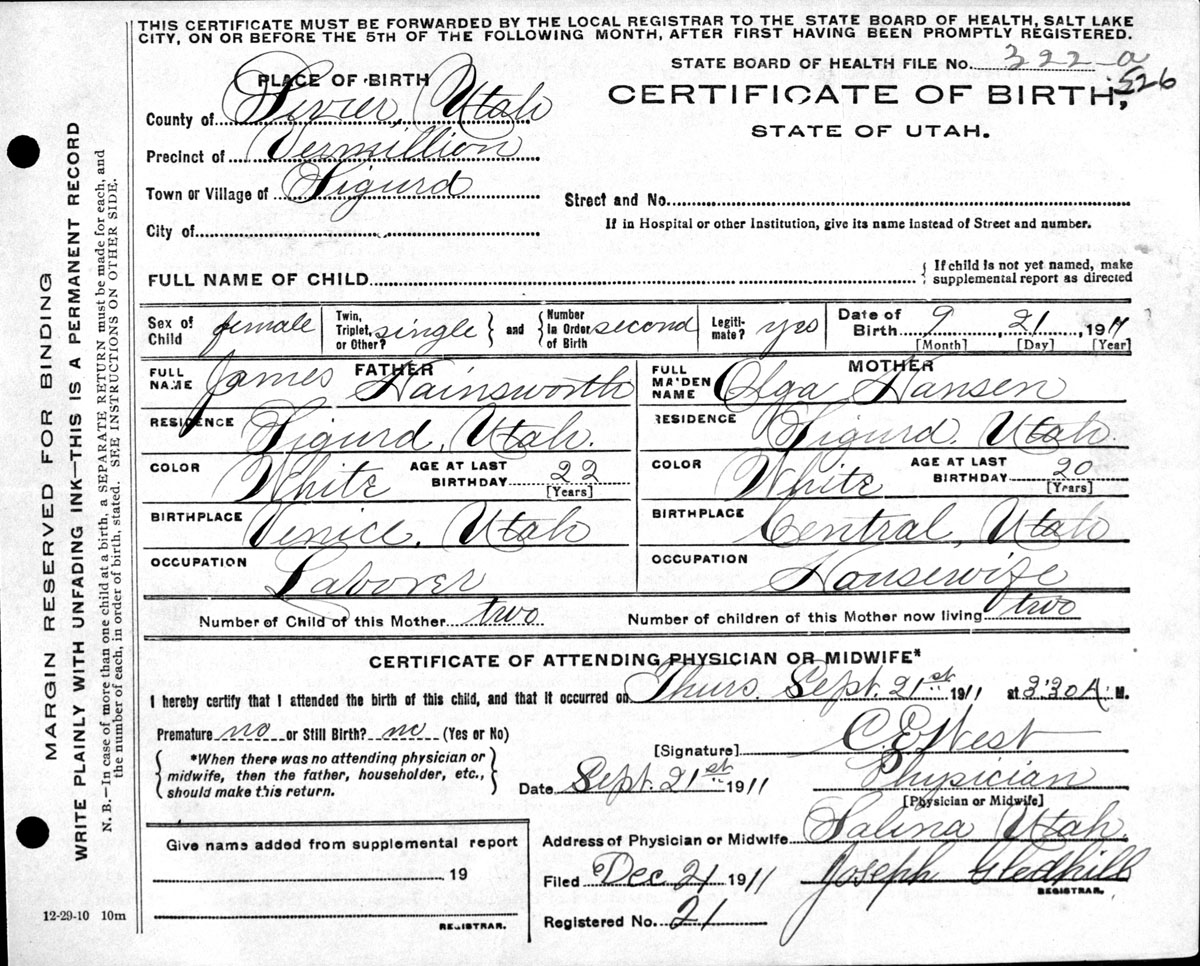 THIS CERTIFICATE MUST BE FORWARDED BY THE LOCAL REGISTRAR TO THE STATE BOARD OF HEALTH, SALT LAKE
CITY, ON OR BEFORE THE 5TH OF THE FOLLOWING MONTH, AFTER FIRST HAVING BEEN PROMPTLY REGISTERED.
STATE BOARD OF HEALTH FILE No. 322-a
526
PLACE OF BIRTH
CERTIFICATE OF BIRTH,
County of Sevier, Utah
STATE OF UTAH.
Precinct of Vermillion
Town or Village of Sigurd
Street and No.
City of
If in Hospital or other Institution, give its name instead of Street and number.
FULL NAME OF CHILD
If child is not yet named, make
supplemental report as directed
Sex of Child female Twin, Triplet, or Other? single and Number In Order of Birth second Legiti-mate? yes Date of Birth 9 21, 1911
[Month] [Day] [Year]
FATHER
FULL NAME James Hainsworth
RESIDENCE Sigurd, Utah.
COLOR White AGE AT LAST BIRTHDAY 22
[Years]
BIRTHPLACE Venice, Utah
OCCUPATION Laborer
MOTHER
FULL MAIDEN NAME Olga Hansen
RESIDENCE Sigurd, Utah.
COLOR White AGE AT LAST BIRTHDAY 20
[Years]
BIRTHPLACE Central, Utah
OCCUPATION Housewife
Number of Child of this Mother two Number of children of this Mother now living two
CERTIFICATE OF ATTENDING PHYSICIAN OR MIDWIFE*
I hereby certify that I attended the birth of this child, and that it occurred on Thurs. Sept. 21st 1911 at 3:30 A. M.
Premature no or Still Birth? no (Yes or No)
[Signature] C. E. West
*When there was no attending physician or
midwife, then the father, householder, etc.,
should make this return.
Date Sept. 21st 1911 Physician
[Physician or Midwife]
Address of Physician or Midwife Salina Utah
Filed Dec 21 1911 Joseph Gledhill
REGISTRAR.
Registered No. 21
Give name added from supplemental report
19
REGISTRAR.
12-29-10 10m
MARGIN RESERVED FOR BINDING
WRITE PLAINLY WITH UNFADING INK—THIS IS A PERMANENT RECORD
N. B.—In case of more than one child at a birth, a SEPARATE RETURN must be made for each, and
the number of each, in order of birth, stated. SEE INSTRUCTIONS ON OTHER SIDE.